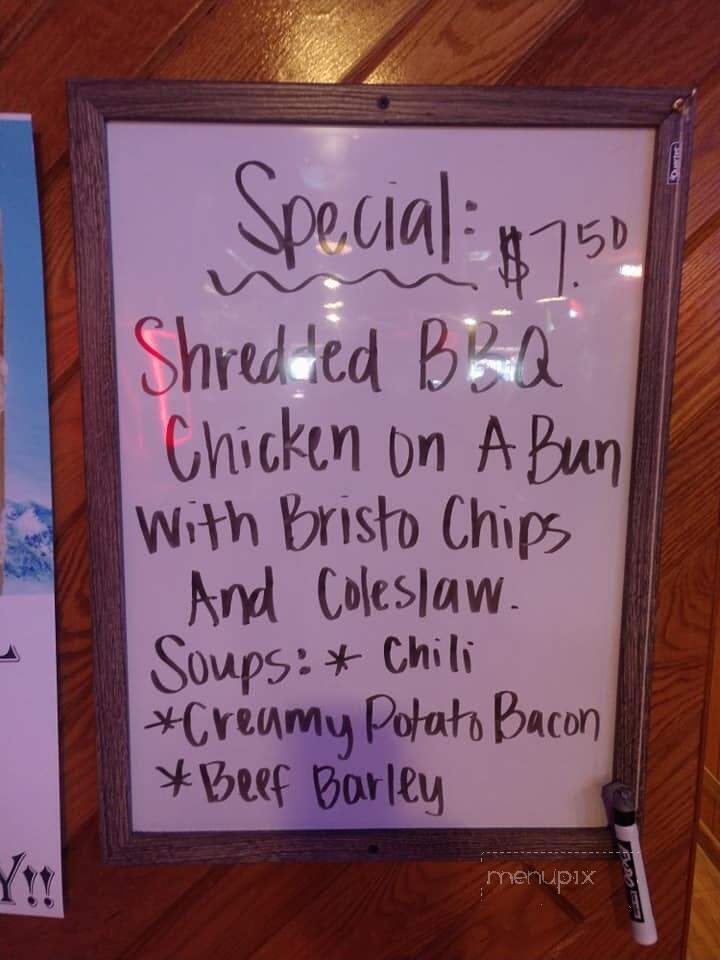 Special: $7.50
Shredded BBQ
Chicken on A Bun
With Bristo Chips
And Coleslaw.
Soups: * Chili
*Creamy Potato Bacon
*Beef Barley
Quartet
EXPO
Y!!
menupix